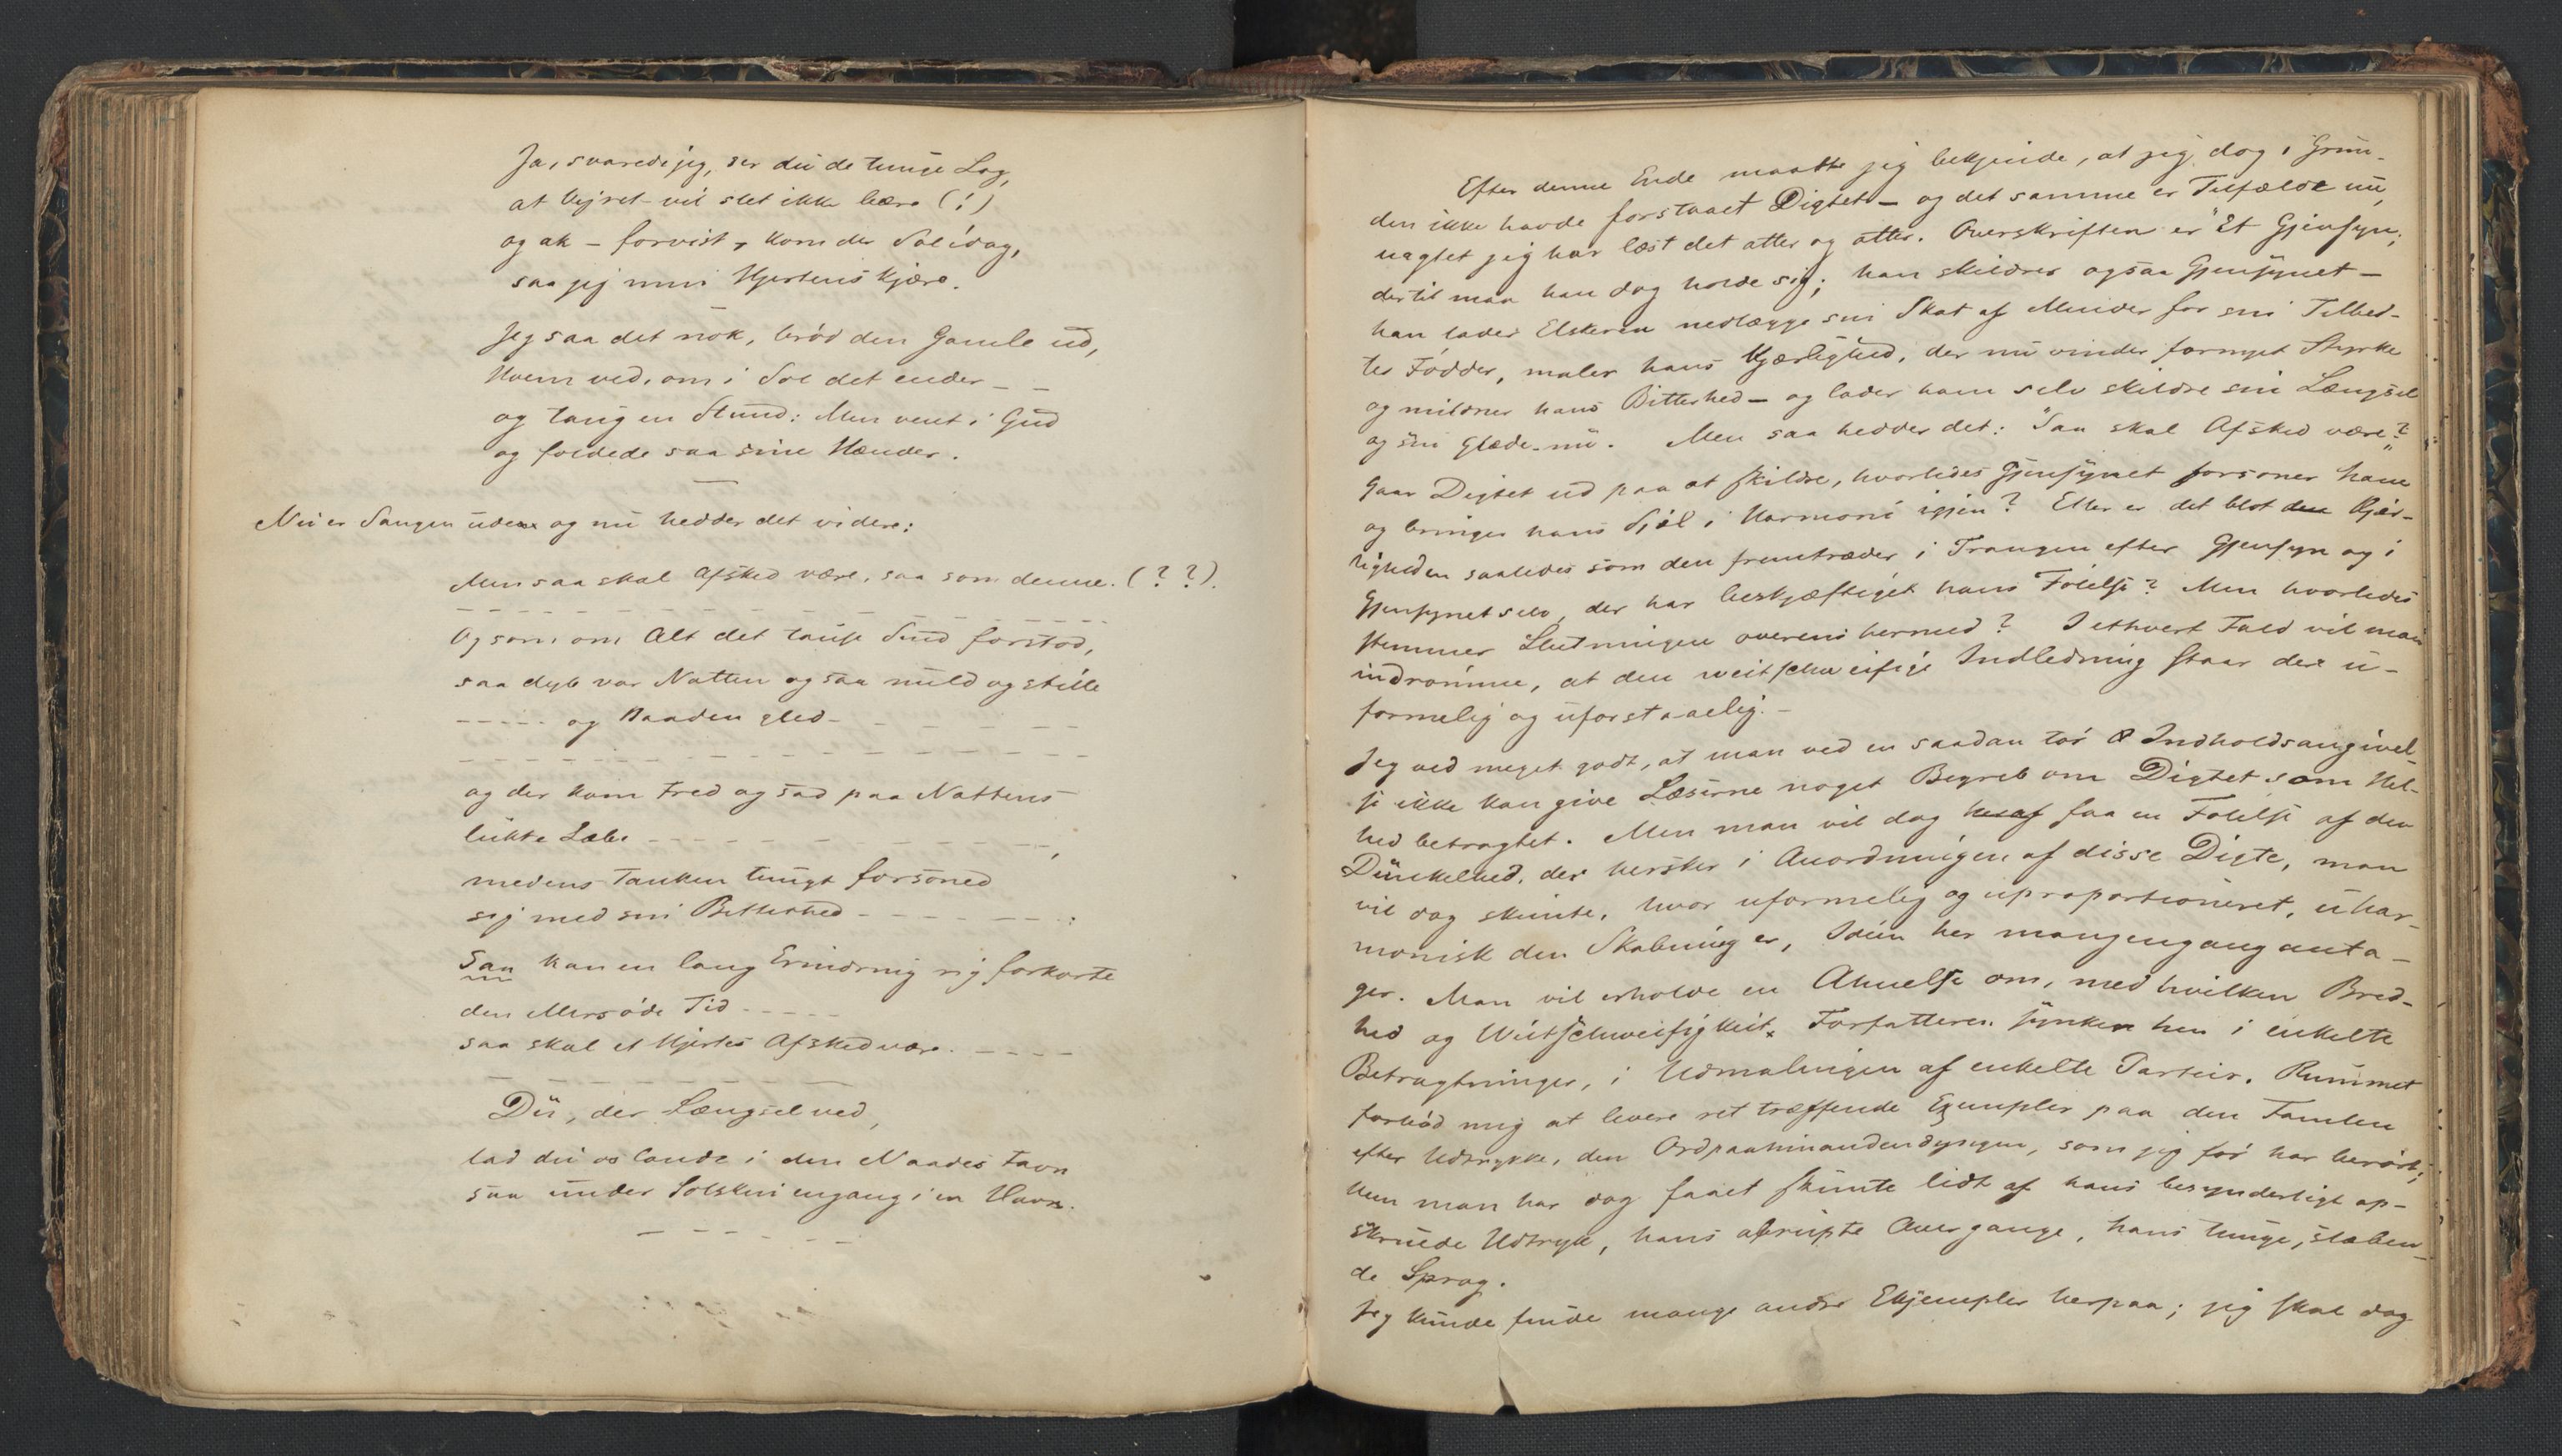 Ja, svarede jeg, ser du de tunge Lag,
at Vejret vil slet ikke bære (!)
og ak – forvist, kom der Sol idag,
saa jeg min Hjertenskjære.
Jeg saa det nok, brød den Gamle ud,
Hvem ved, om i Sol det ender – –
og taug en Stund: Men vent i Gud
og foldede saa sine Hænder.
Nu er Sangen ude og nu hedder det videre:
Men saa skal Afsked være, saa som denne. (??).
Og som om Alt det tause Sund forstod,
saa dyb var Natten og saa mild og stille
– – – – – og Baaden gled – – – – –
og der kom Fred og sad paa Nattens
lukte Læbe – – – – – – – – – –,
medens Tanken tungt forsoned
sig med sin Bitterhed – – – – – – – – :
Saa kan en lang Erindring sig forkorte
den Mersøde Tid – – – – –
saa skal et Hjertes Afsked være. – – – –
Du, der Længsel ved,
lad du os lande i den Naades Favn
saa under Solskin engang i en Havn.
– – – – – –
Efter denne Ende maatte jeg bekjende, at jeg dog i Grun-
den ikke havde forstaaet Digtet – og det samme er Tilfælde nu,
uagtet jeg har læst det atter og atter. Overskriften er "Et Gjensyn;
dertil maa han dog holde sig; han skildrer ogsaa Gjensynet –
han lader Elskeren nedlægge sin Skat af Minder for sin Tilbed-
tes Fødder, maler hans Kjærlighed, der nu vinder fornyet Styrke
og mildner hans Bitterhed – og lader ham selv skildre sin Længsel
og sin Glæde – nu. Men saa hedder det: "Saa skal Afsked være?"
Gaar Digtet ud paa at skildre, hvorledes Gjensynet forsoner ham
og bringer hans Sjæl i Harmoni igjen? Eller er det blot den Kjær-
ligheden saaledes som den fremtræder i Trangen efter Gjensyn og i
Gjensynet selv, der har beskjæftiget hans Følelse? Men hvorledes
stemmer Slutningen overens hermed? I ethvert Fald vil man
indrømme, at den weitschweifige Indledning staar der u-
formelig og uforstaaelig. –
Jeg ved meget godt, at man ved en saadan tør Indholdsangivel-
se ikke kan give Læserne noget Begreb om Digtet som Hel-
hed betragtet. Men man vil dog heraf faa en Følelse af den
Dunkelhed, der hersker i Anordningen af disse Digte, man
vil dog skimte, hvor uformelig og uproportioneret, uhar-
monisk den Skabning er, Ideen her mangengang anta-
ger. Man vil erholde en Ahnelse om, med hvilken Bred-
hed og Weitschweifigkeit Forfatteren synker hen i enkelte
Betragtninger, i Udmalingen af enkelte Partier. Rummet
forbød mig at levere ret træffende Exempler paa den Famlen
efter Udtrykke, den Ordpaahinandendyngen, som jeg før har berørt;
Men man har dog faaet skimte lidt af hans besynderligt op-
skruede Udtryk, hans abrupte Overgange, hans tunge, slæben-
de Sprog.
Jeg kunde finde mange andre Exjempler herpaa; jeg skal dog